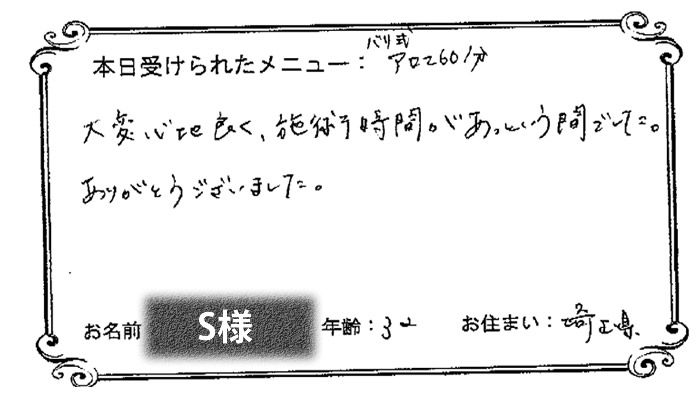 本日受けられたメニュー:バリ式アロマ60分
大変心地良く、施術時間があっという間でした。
ありがとうございました。
お名前 S様 年齢:32 お住まい:埼玉県